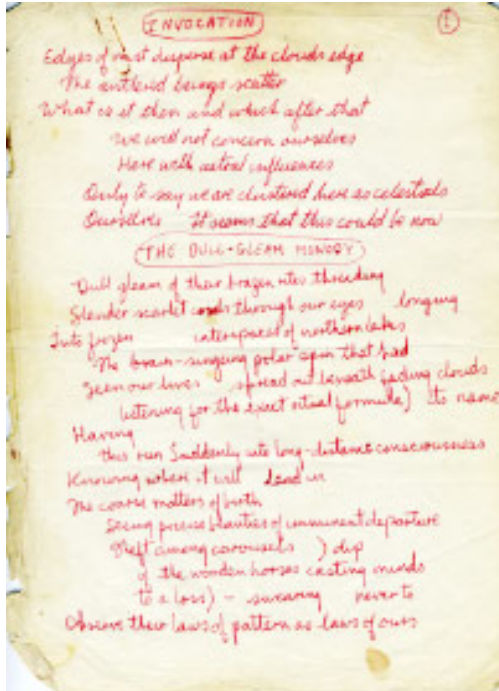 INVOCATION
1
Edges of mist disperse at the clouds edge
The antlered beings scatter
What is it then and which after that
we will not concern ourselves
Here with astral influences
Only to say we are clustered here as celestials
Ourselves It seems that this could be now
THE DULL-GLEAM MEMORY
Dull gleam of their brazen rites threading
Slender scarlet cords through our eyes longing
Into frozen interspaces of northern lakes
The brain-singing polar again that had
Seen our lives spread out beneath fading clouds
listening for the exact ritual formula) its name
Having
thus run Suddenly into long-distance consciousness
Knowing where it will lead us
The coarse matters of birth
Seeing precise beauties of imminent departure
Theft among carousels ) dip
of the wooden horses casting minds
to a loss) - swearing never to
Observe their laws of pattern as laws of ours